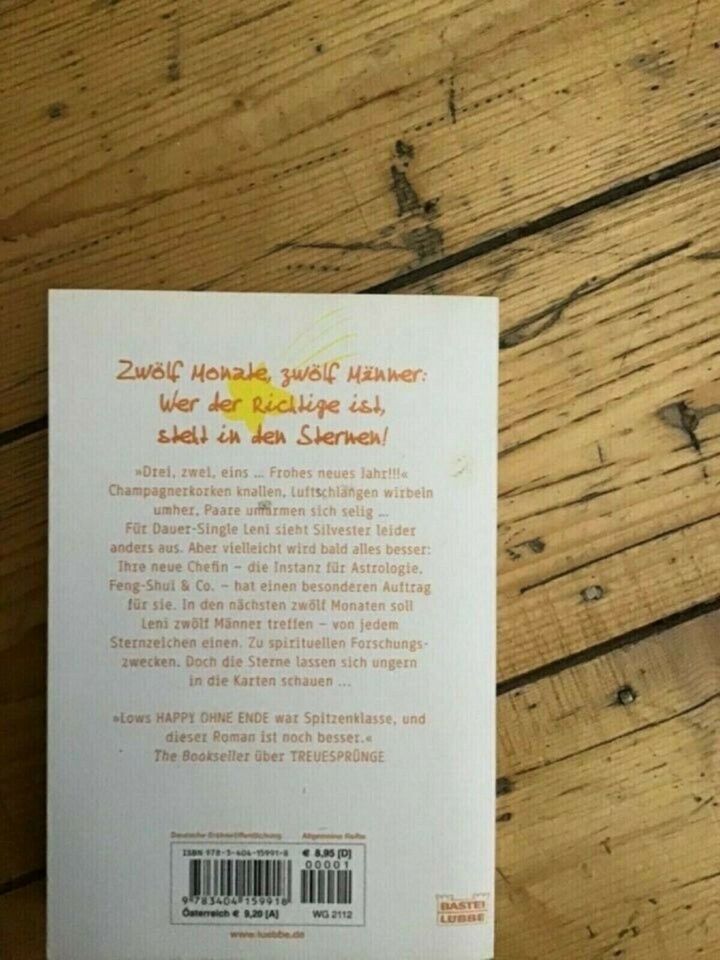 Zwölf Monate, zwölf Männer:
Wer der Richtige ist,
steht in den Sternen!
»Drei, zwei, eins ... Frohes neues Jahr!!!«
Champagnerkorken knallen, Luftschlangen wirbeln
umher, Paare umarmen sich selig ...
Für Dauer-Single Leni sieht Silvester leider
anders aus. Aber vielleicht wird bald alles besser:
Ihre neue Chefin – die Instanz für Astrologie,
Feng-Shui & Co. – hat einen besonderen Auftrag
für sie. In den nächsten zwölf Monaten soll
Leni zwölf Männer treffen – von jedem
Sternzeichen einen. Zu spirituellen Forschungs-
zwecken. Doch die Sterne lassen sich ungern
in die Karten schauen ...
»Lows HAPPY OHNE ENDE war Spitzenklasse, und
dieser Roman ist noch besser.«
The Bookseller über TREUESPRÜNGE
Deutsche Erstveröffentlichung Allgemeine Reihe
ISBN 978-3-404-15991-8 € 8,95 [D]
00001
9 783404 159918
Österreich € 9,20 [A] WG 2112
www.luebbe.de
BASTEI
LÜBBE